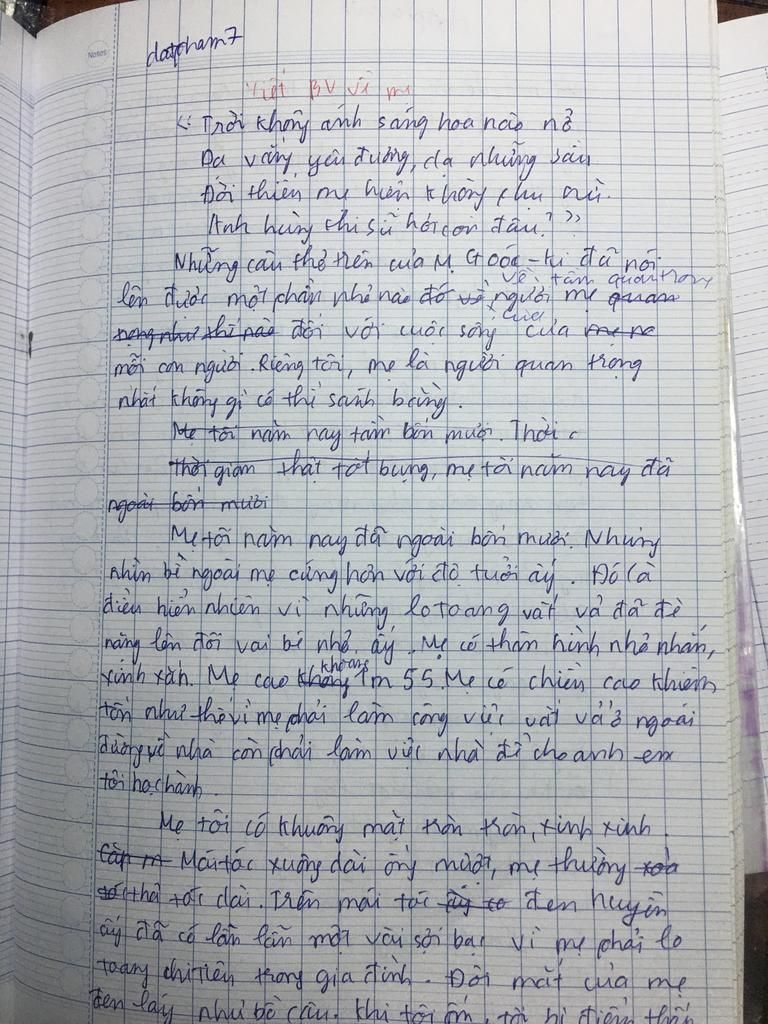 Notes
datpham7
Viết BV về mẹ
"Trời không ánh sáng hoa nào nở
Dạ vắng yêu đương, dạ những sầu
Đời thiếu mẹ hiền không phụ nữ.
Anh hùng thi sĩ hỏi còn đâu?"
Những câu thơ trên của M. Goóc-ki đã nói
lên được một phần nhỏ nào đó về người mẹ quan
về tầm quan trọng
của
trọng như thế nào đối với cuộc sống của me
mỗi con người. Riêng tôi, mẹ là người quan trọng
nhất không gì có thể sánh bằng.
Mẹ tôi năm nay tầm bốn mươi. Thời
thời gian thật tốt bụng, mẹ tôi năm nay đã
ngoài bốn mươi
Mẹ tôi năm nay đã ngoài bốn mươi. Nhưng
nhìn bề ngoài mẹ cứng hơn với độ tuổi ấy. Đó là
điều hiển nhiên vì những lo toang vất vả đã đè
nặng lên đôi vai bé nhỏ ấy. Mẹ có thân hình nhỏ nhắn,
xinh xắn. Mẹ cao không 1m55. Mẹ có chiều cao khiêm
khoảng
tốn như thế vì mẹ phải làm công việc vất vả ở ngoài
đường về nhà còn phải làm việc nhà để cho anh em
tôi học hành.
Mẹ tôi có khuông mặt tròn tròn, xinh xinh.
Mái tóc xuông dài óng mượt, mẹ thường xoả
tóc thả tóc dài. Trên mái tóc ấy đen huyền
ấy đã có lấn lấn một vài sợi bạc vì mẹ phải lo
toang chi tiêu trong gia đình. Đôi mắt của mẹ
đen láy như bồ câu. Khi tôi ốm, tôi bị điểm thấp